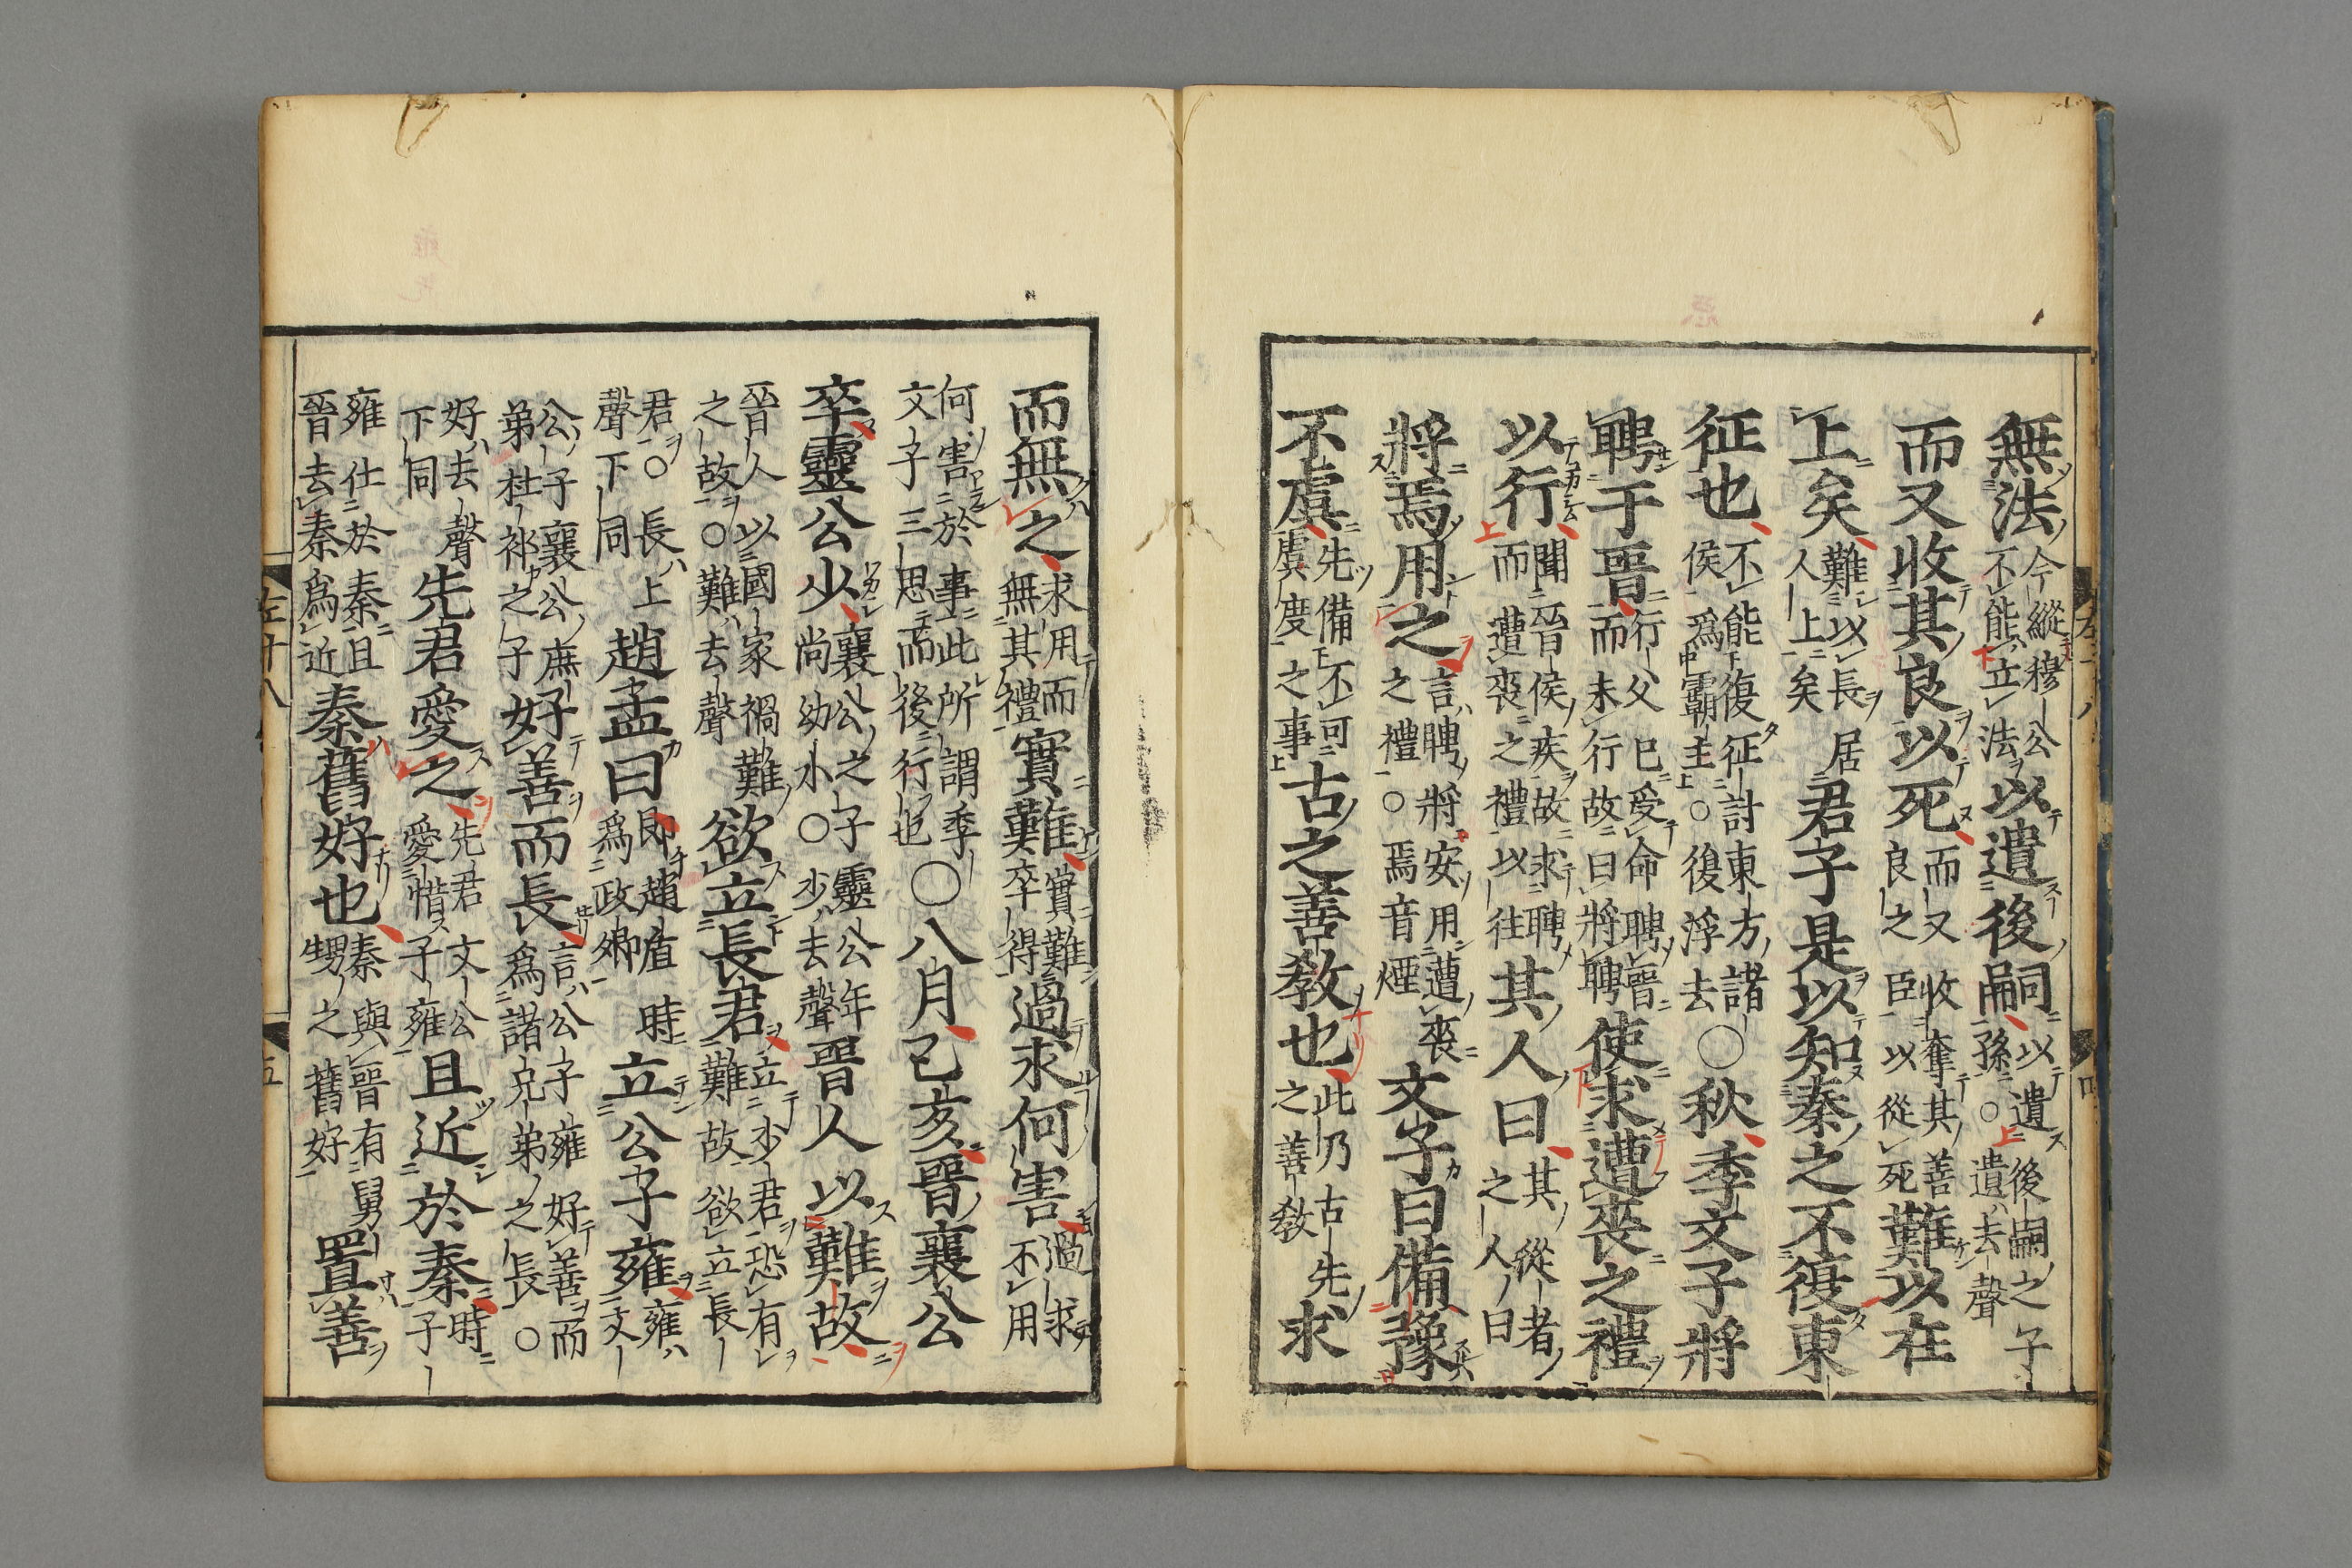 無法今縱穆公不能立法以遺後嗣以遺後嗣之子孫○遺去聲
而又收其良以死而又收奪其善良之臣以從死難以在
上矣難以長居人上矣君子是以知秦之不復東
征也不能復征討東方諸侯爲霸主○復浮去○秋季文子將
聘于晉行父已受命聘晉而未行故曰將聘使求遭喪之禮
以行聞晉侯疾故求聘而遭喪之禮以往其人曰其從者之人曰
將焉用之言聘將安用遭喪之禮○焉音煙文子曰備豫
不虞先備不可虞度之事古之善教也此乃古先之善敎求
而無之求用而無其禮實難實難卒得過求何害過求不用
何害於事此所謂季文子三思而後行也○八月乙亥晉襄公
卒靈公少襄公之子靈公年尚幼小○少去聲晉人以難故
晉人以國家禍難之故○難去聲欲立長君立少君恐有難故欲立長
君○長上聲下同趙孟曰即趙盾時爲政卿立公子雍雍文
公子襄公庶弟杜祁之子好善而長言公子雍好善而爲諸兄弟之長○
好去聲下同先君愛之先君文公愛惜子雍且近於秦時子
雍仕於秦且晉去秦爲近秦舊好也秦與晉有舅甥之舊好置善